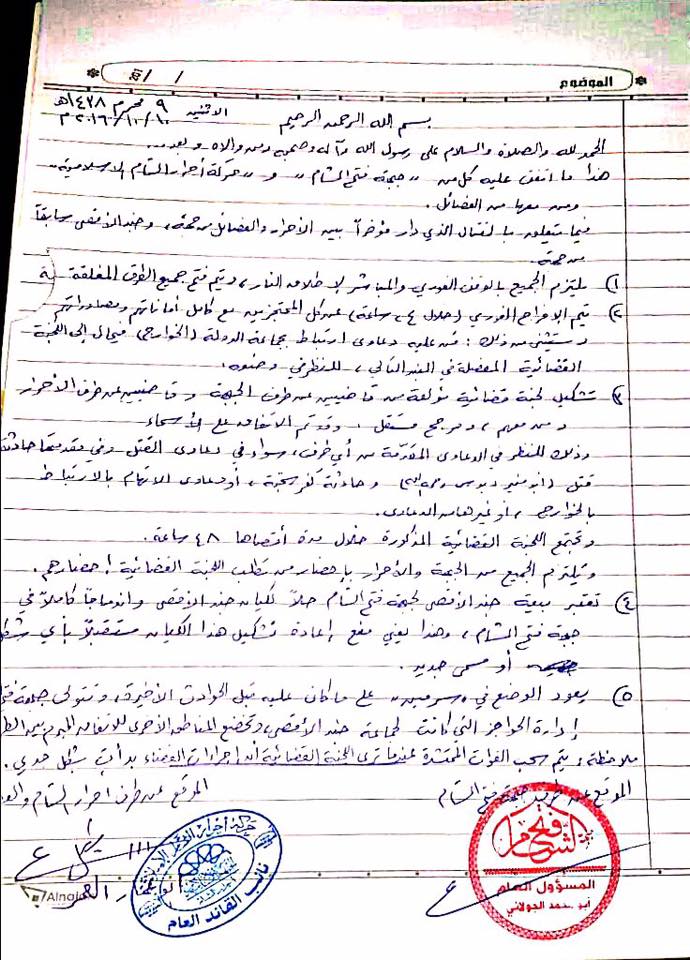 الموضوع
/ / 201
الاثنين ٩ محرم ١٤٣٨هـ
٢٠١٦/١٠/١٠م
بسم الله الرحمن الرحيم
الحمد لله والصلاة والسلام على رسول الله وآله وصحبه ومن والاه وبعد..
هذا ما اتفق عليه كل من "جبهة فتح الشام" و "حركة أحرار الشام الإسلامية"
ومن معها من الفصائل.
فيما يتعلق بالقتال الذي دار مؤخراً بين الأحرار والفصائل من جهة، وجند الأقصى سابقاً
من جهة.
١) يلتزم الجميع بالوقف الفوري والمباشر لإطلاق النار، ويتم فتح جميع الطرق المغلقة.
٢) يتم الإفراج الفوري (خلال ٢٤ ساعة) عن كل المحتجزين مع كامل أماناتهم ومصادراتهم
ويستثنى من ذلك: من عليه دعاوى ارتباط بجماعة الدولة (الخوارج) فيحال إلى اللجنة
القضائية المفصلة في البند التالي، للنظر في وضعه.
٣) تشكيل لجنة قضائية مؤلفة من قاضيين عن طرف الجبهة وقاضيين عن طرف الأحرار
ومن معهم، ومرجح مستقل. وقد تم الاتفاق على الأسماء
وذلك للنظر في الدعاوى المقدمة من أي طرف، سواء في دعاوى القتل وفي مقدمتها حادثة
قتل (أبو منير دبوس ومن معه) وحادثة كفرسجنة، أو دعاوى الاتهام بالارتباط
بالخوارج، أو غيرها من الدعاوى.
وتجتمع اللجنة القضائية المذكورة خلال مدة أقصاها ٤٨ ساعة.
ويلتزم الجميع من الجبهة والأحرار بإحضار من تطلب اللجنة القضائية إحضارهم.
٤) تعتبر بيعة جند الأقصى لجبهة فتح الشام حلاً لكيان جند الأقصى واندماجاً كاملاً في
جبهة فتح الشام، وهذا يعني منع إعادة تشكيل هذا الكيان مستقبلاً بأي شكل
أو مسمى جديد.
٥) يعود الوضع في "سرمين" على ما كان عليه قبل الحوادث الأخيرة، وتتولى جبهة فتح
إدارة الحواجز التي كانت لجماعة جند الأقصى، وتخضع المناطق الأخرى للاتفاق المبرم بين الطر
ملاحظة: ويتم سحب القوات المحتشدة عندما ترى اللجنة القضائية أن إجراءات القضاء بدأت بشكل جدي.
الموقع عن طرف جبهة فتح الشام
الموقع عن طرف أحرار الشام والف
جبهة فتح الشام
المسؤول العام
أبو محمد الجولاني
حركة أحرار الشام الإسلامية
نائب القائد العام